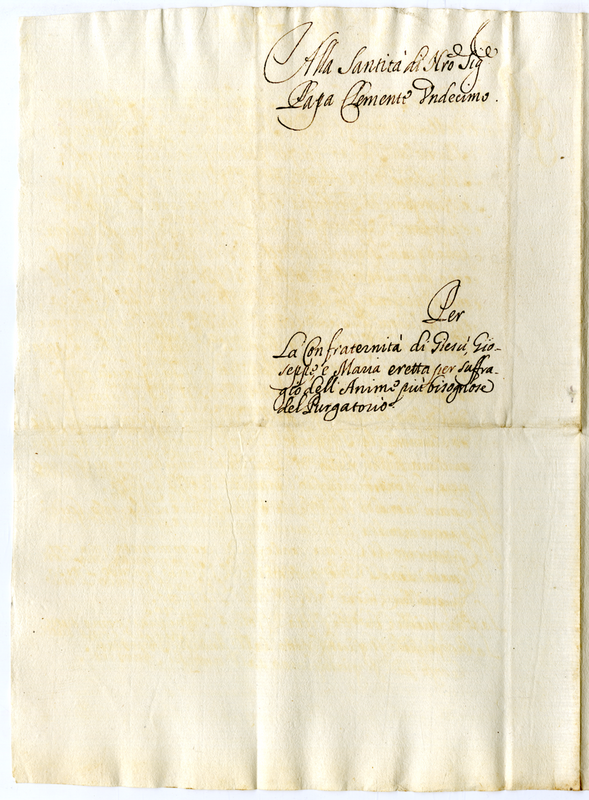 Alla Santità di Nro Sig.re
Papa Clemente Vndecimo.
Per
La Confraternità di Giesù, Gio-
seppe e Maria eretta per suffra-
gio dell'Anime più bisognose
del Purgatorio.